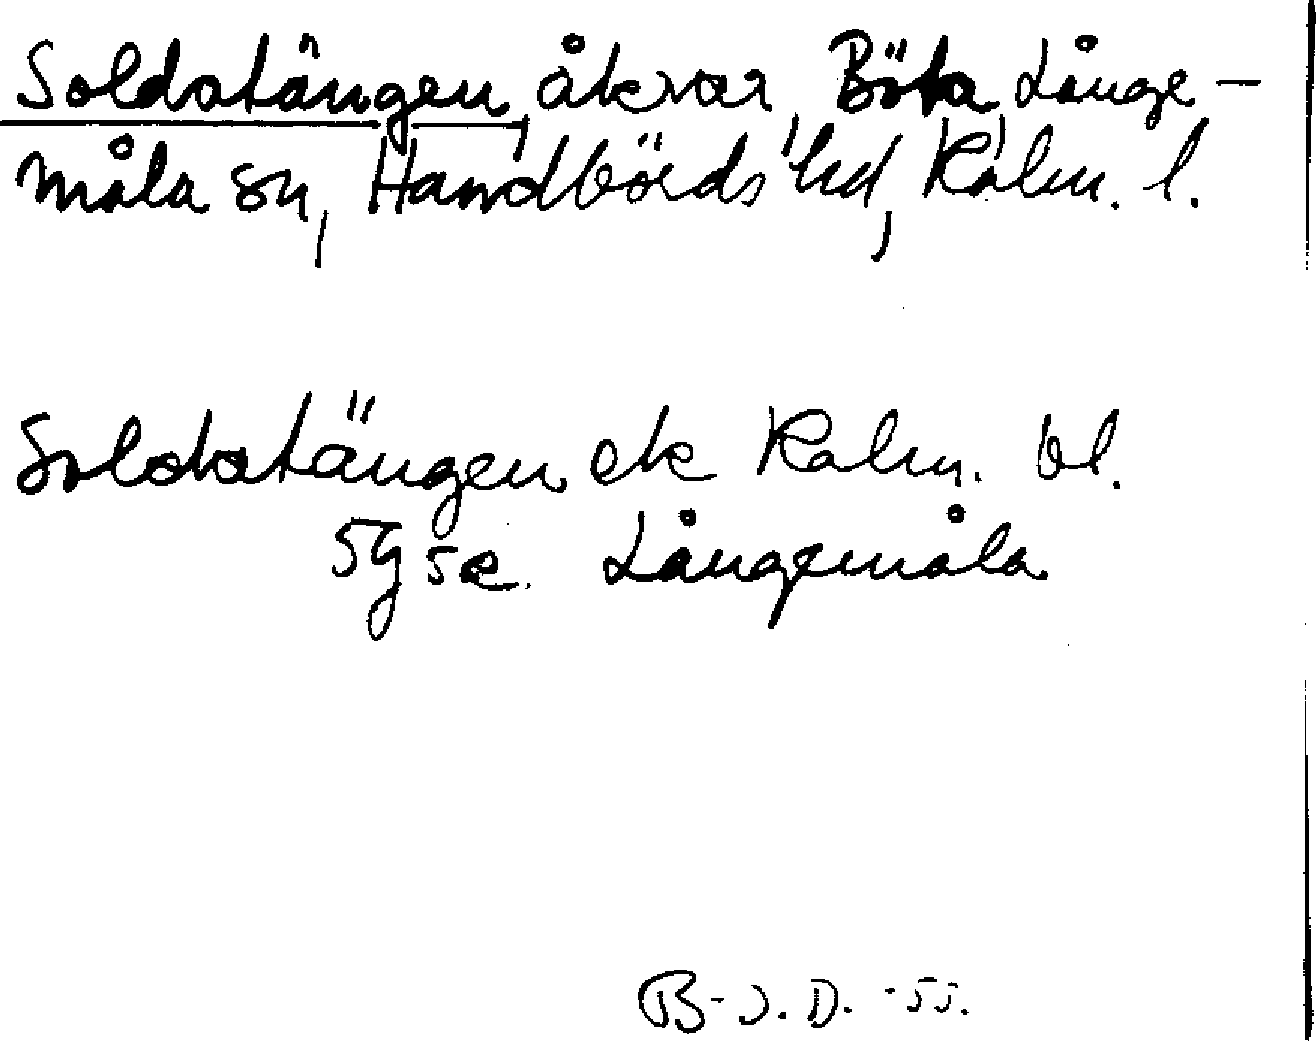 Soldatängen, åkrar, Böta, Långe-
måla sn, Handbörds hd, Kalm. l.
Soldatängen ek Kalm. bl.
5g5e Långemåla
B-J.D. -55.